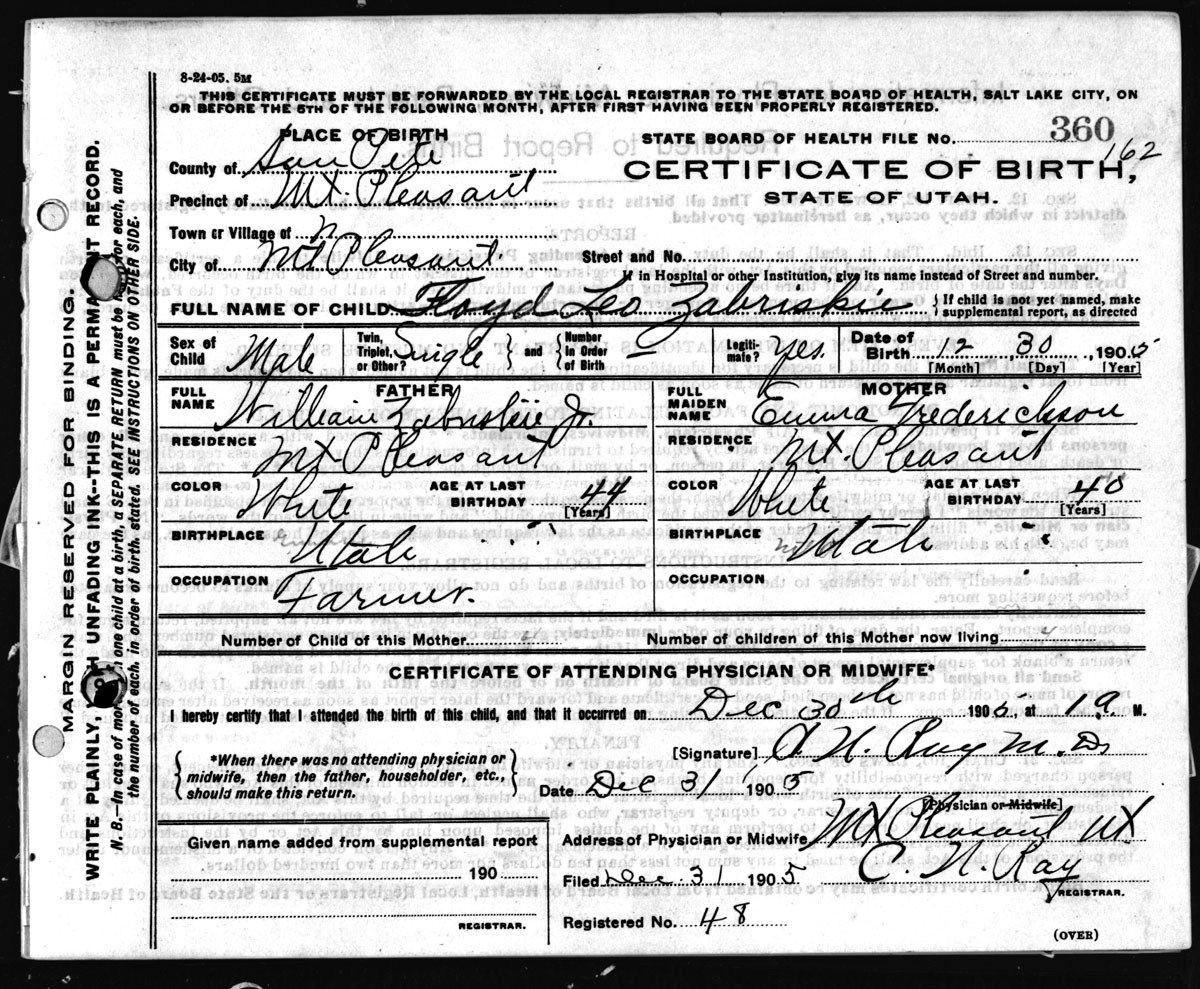 8-24-05. 5M
THIS CERTIFICATE MUST BE FORWARDED BY THE LOCAL REGISTRAR TO THE STATE BOARD OF HEALTH, SALT LAKE CITY, ON
OR BEFORE THE 5TH OF THE FOLLOWING MONTH, AFTER FIRST HAVING BEEN PROPERLY REGISTERED.
PLACE OF BIRTH
STATE BOARD OF HEALTH FILE No. 360
162
County of San Pete
CERTIFICATE OF BIRTH,
Precinct of Mt. Pleasant
STATE OF UTAH.
Town or Village of
City of Mt Pleasant Street and No.
If in Hospital or other Institution, give its name instead of Street and number.
FULL NAME OF CHILD Floyd Leo Zabriskie { If child is not yet named, make
supplemental report, as directed
Sex of Child Male Twin, Triplet, or Other? Single } and { Number In Order of Birth Legiti-mate? Yes. Date of Birth 12 30 1905
[Month] [Day] [Year]
FATHER MOTHER
FULL NAME William Zabriskie Jr. FULL MAIDEN NAME Emma Frederickson
RESIDENCE Mt Pleasant RESIDENCE Mt. Pleasant
COLOR White AGE AT LAST BIRTHDAY 44 [Years] COLOR White AGE AT LAST BIRTHDAY 40 [Years]
BIRTHPLACE Utah BIRTHPLACE Utah
OCCUPATION Farmer. OCCUPATION
Number of Child of this Mother 4 Number of children of this Mother now living 4
CERTIFICATE OF ATTENDING PHYSICIAN OR MIDWIFE*
I hereby certify that I attended the birth of this child, and that it occurred on Dec 30th 1905, at 1 a. M.
{ *When there was no attending physician or
midwife, then the father, householder, etc.,
should make this return. }
[Signature] A. N. Ray M.D.
Date Dec 31 1905
[Physician or Midwife]
Given name added from supplemental report
190
REGISTRAR.
Address of Physician or Midwife Mt Pleasant Ut
Filed Dec 31 1905 C. N. Ray
REGISTRAR.
Registered No. 48
(OVER)
MARGIN RESERVED FOR BINDING.
WRITE PLAINLY, WITH UNFADING INK--THIS IS A PERMANENT RECORD.
N. B.--In case of more than one child at a birth, a SEPARATE RETURN must be for each, and
the number of each, in order of birth, stated. SEE INSTRUCTIONS ON OTHER SIDE.